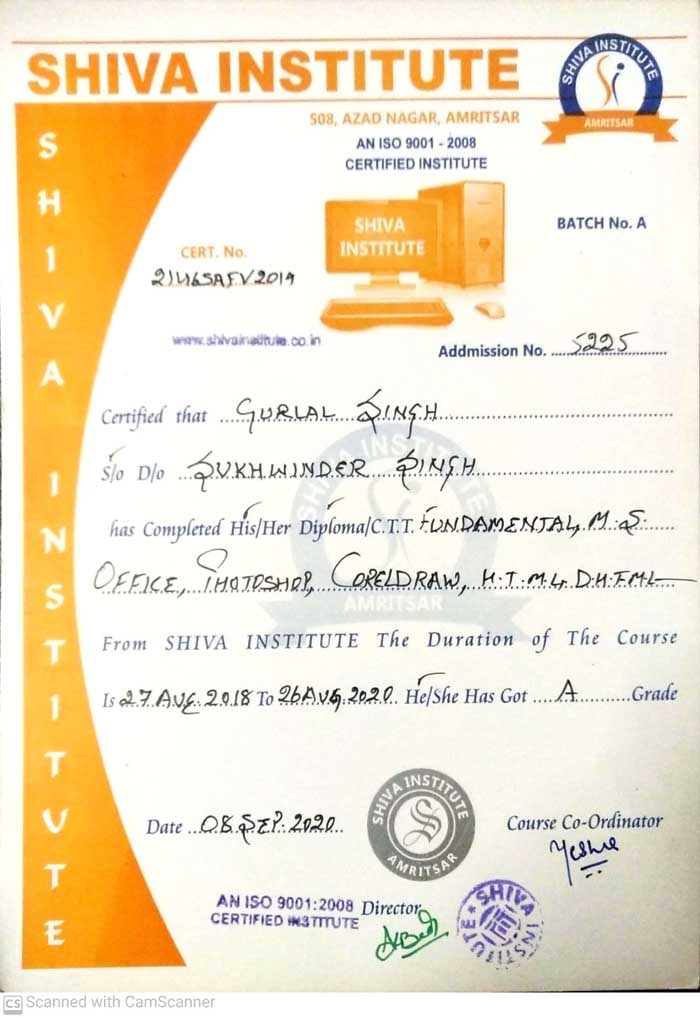 SHIVA INSTITUTE
SHIVA INSTITUTE
AMRITSAR
508, AZAD NAGAR, AMRITSAR
AN ISO 9001 - 2008
CERTIFIED INSTITUTE
SHIVA INSTITUTE
SHIVA
INSTITUTE
BATCH No. A
CERT. No.
21465AFV2019
www.shivainstitute.co.in
Addmission No. ....5225
Certified that ...GURLAL SINGH
S/o D/o ..SUKHWINDER SINGH
has Completed His/Her Diploma/C.T.T. FUNDAMENTAL, M.S.
OFFICE, PHOTOSHOP, CORELDRAW, H.T.M.L, D.H.T.M.L
SHIVA INSTITUTE
AMRITSAR
From SHIVA INSTITUTE The Duration of The Course
Is 27 AUG. 2018 To 26 AUG. 2020. He/She Has Got ....A.........Grade
SHIVA INSTITUTE
AMRITSAR
Date ..08.SEP.2020..
Course Co-Ordinator
AN ISO 9001:2008
CERTIFIED INSTITUTE
Director
SHIVA INSTITUTE
CS Scanned with CamScanner